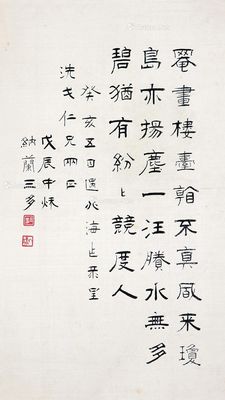 罨畫樓臺翰不真風来瓊
島亦揚塵一汪賸水無多
碧猶有紛〻競度人
癸亥五日遇北海上黍望
洗戈仁兄兩正
戊辰中秋
納蘭三多